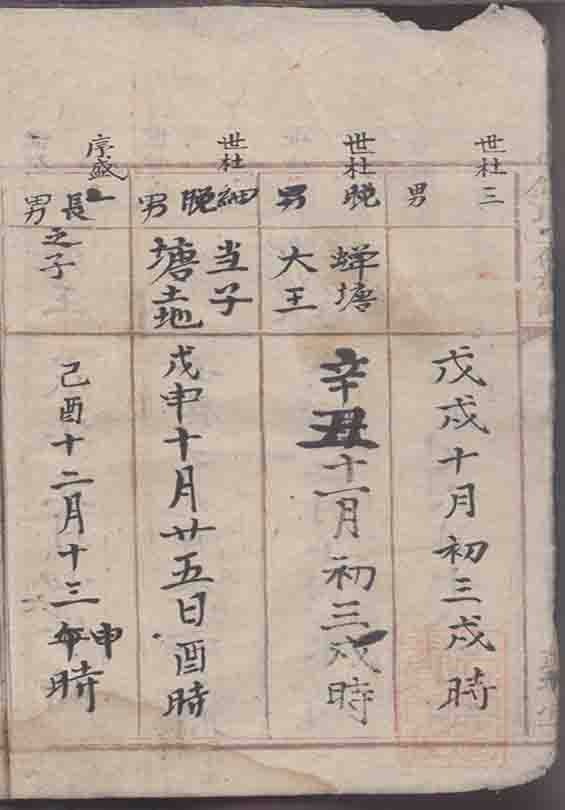 世杜三
男
戊戌十月初三戌時
世杜晚
男
蟬塘
大王
辛丑十一月初三戌時
世杜細晚
男
当子
塘土地
戊申十月廿五日酉時
序盛長
男
之子
己酉十二月十三申時